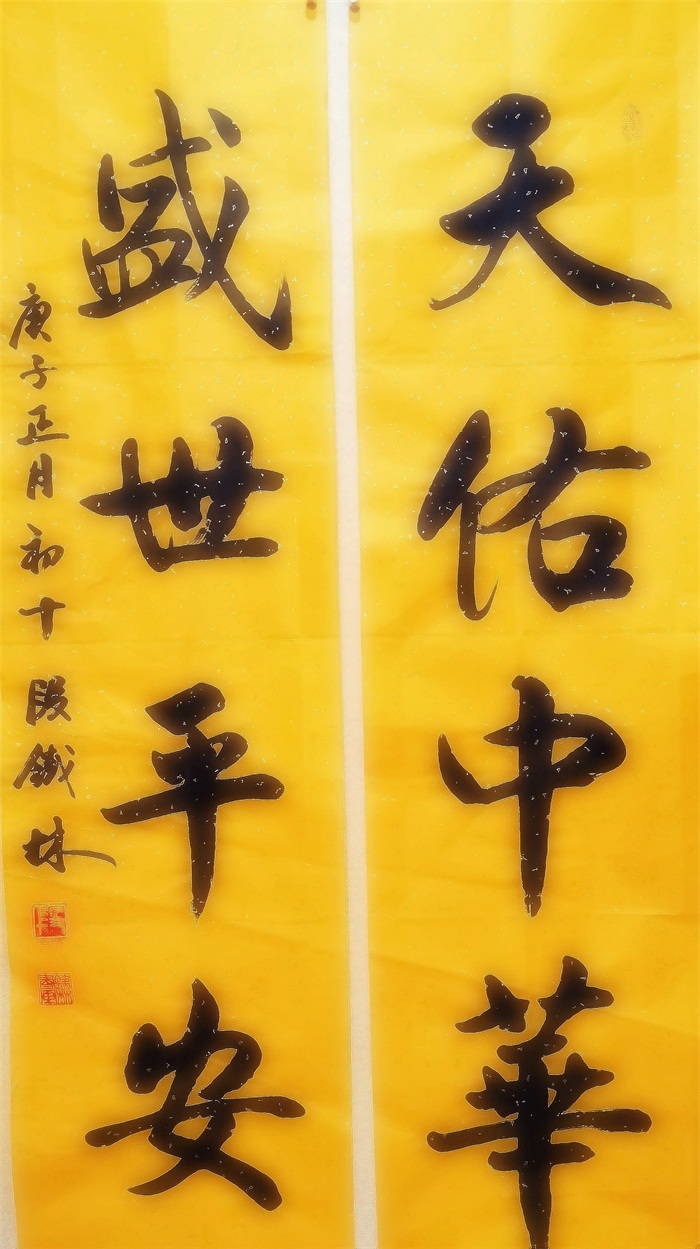 天佑中華
盛世平安
庚子正月初十段鐵林